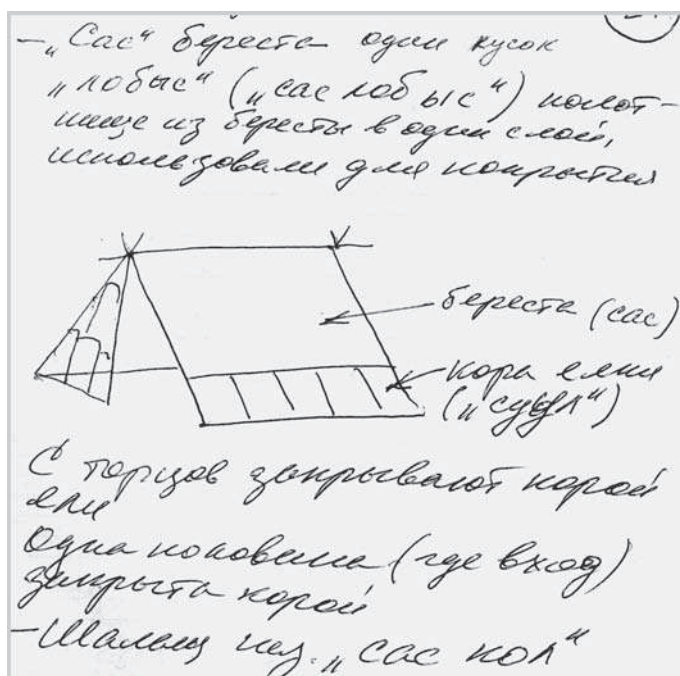 – „Сас" береста один кусок
„лобыс" („сас лобыс") полот-
нище из бересты в один слой,
использовали для покрытия
береста (сас)
кора елки
С торцов закрывают корой
ели
Одна половина (где вход)
закрыта корой
– Шалаш наз. „сас кол"